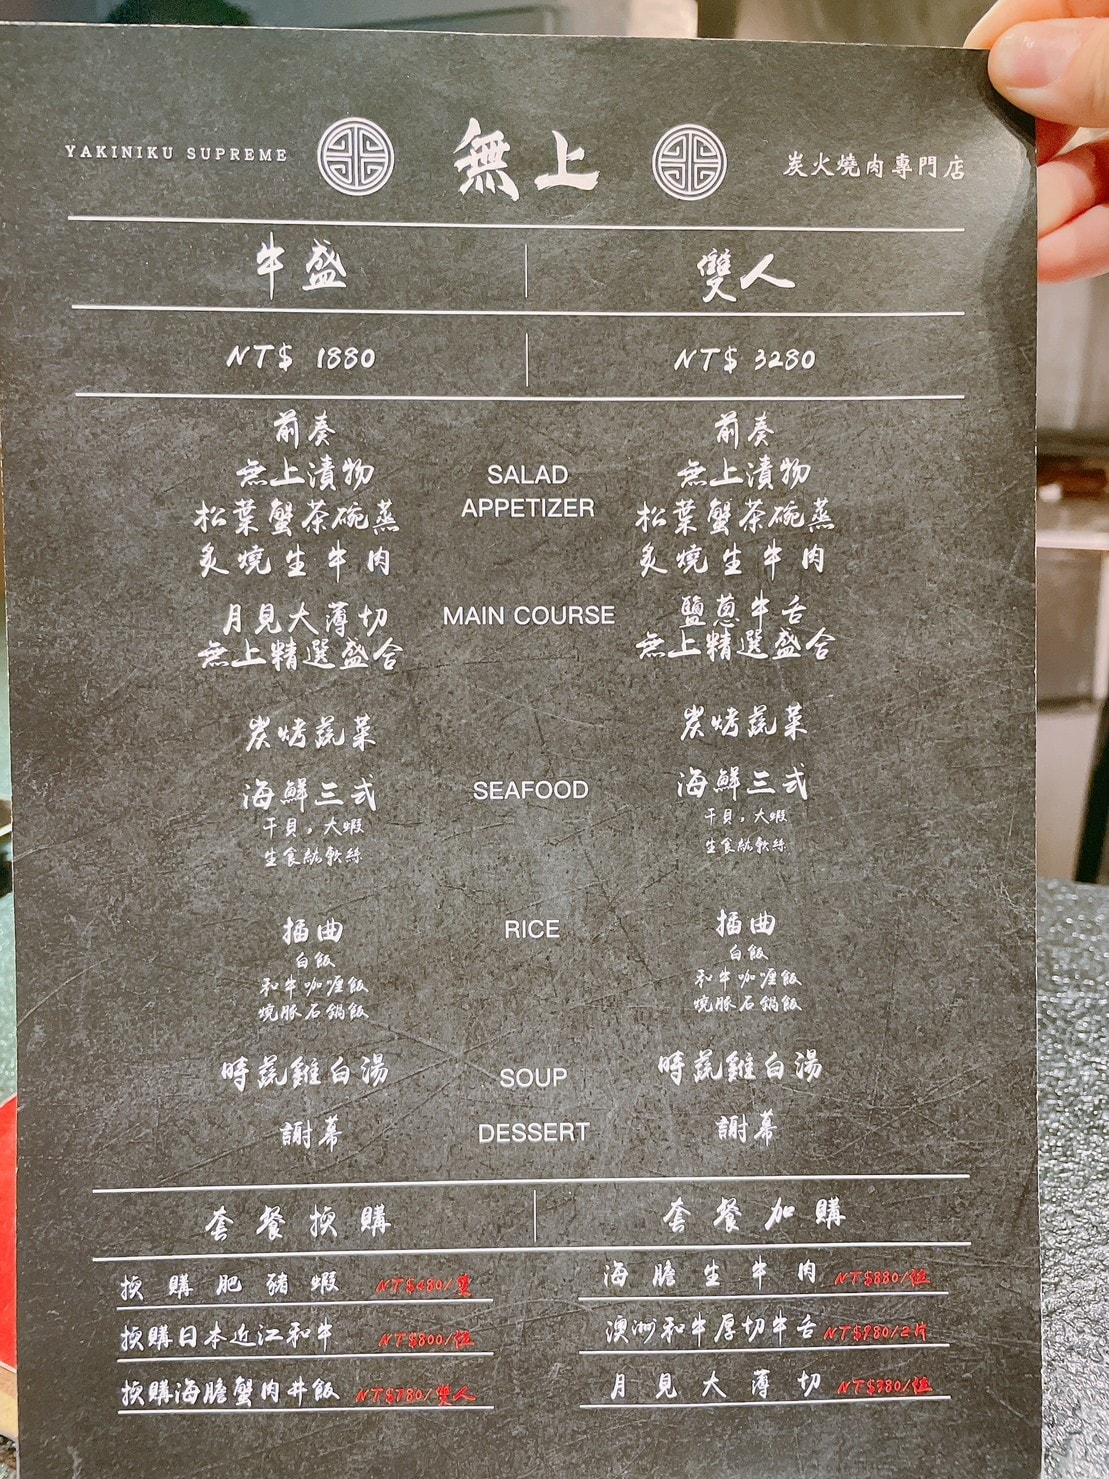 YAKINIKU SUPREME 無上 炭火燒肉專門店
牛盛 雙人
NT$ 1880 NT$ 3280
前奏 前奏
無上漬物 SALAD 無上漬物
松葉蟹茶碗蒸 APPETIZER 松葉蟹茶碗蒸
炙燒生牛肉 炙燒生牛肉
月見大薄切 MAIN COURSE 鹽蔥牛舌
無上精選盛合 無上精選盛合
炭烤蔬菜 炭烤蔬菜
海鮮三式 SEAFOOD 海鮮三式
干貝,大蝦 干貝,大蝦
生食級軟絲 生食級軟絲
插曲 RICE 插曲
白飯 白飯
和牛咖喱飯 和牛咖喱飯
燒豚石鍋飯 燒豚石鍋飯
時蔬雞白湯 SOUP 時蔬雞白湯
謝幕 DESSERT 謝幕
套餐換購 套餐加購
換購肥豬蝦 NT$480/隻 海膽生牛肉 NT$880/位
換購日本近江和牛 NT$800/位 澳洲和牛厚切牛舌 NT$980/2片
換購海膽蟹肉丼飯 NT$780/雙人 月見大薄切 NT$380/位